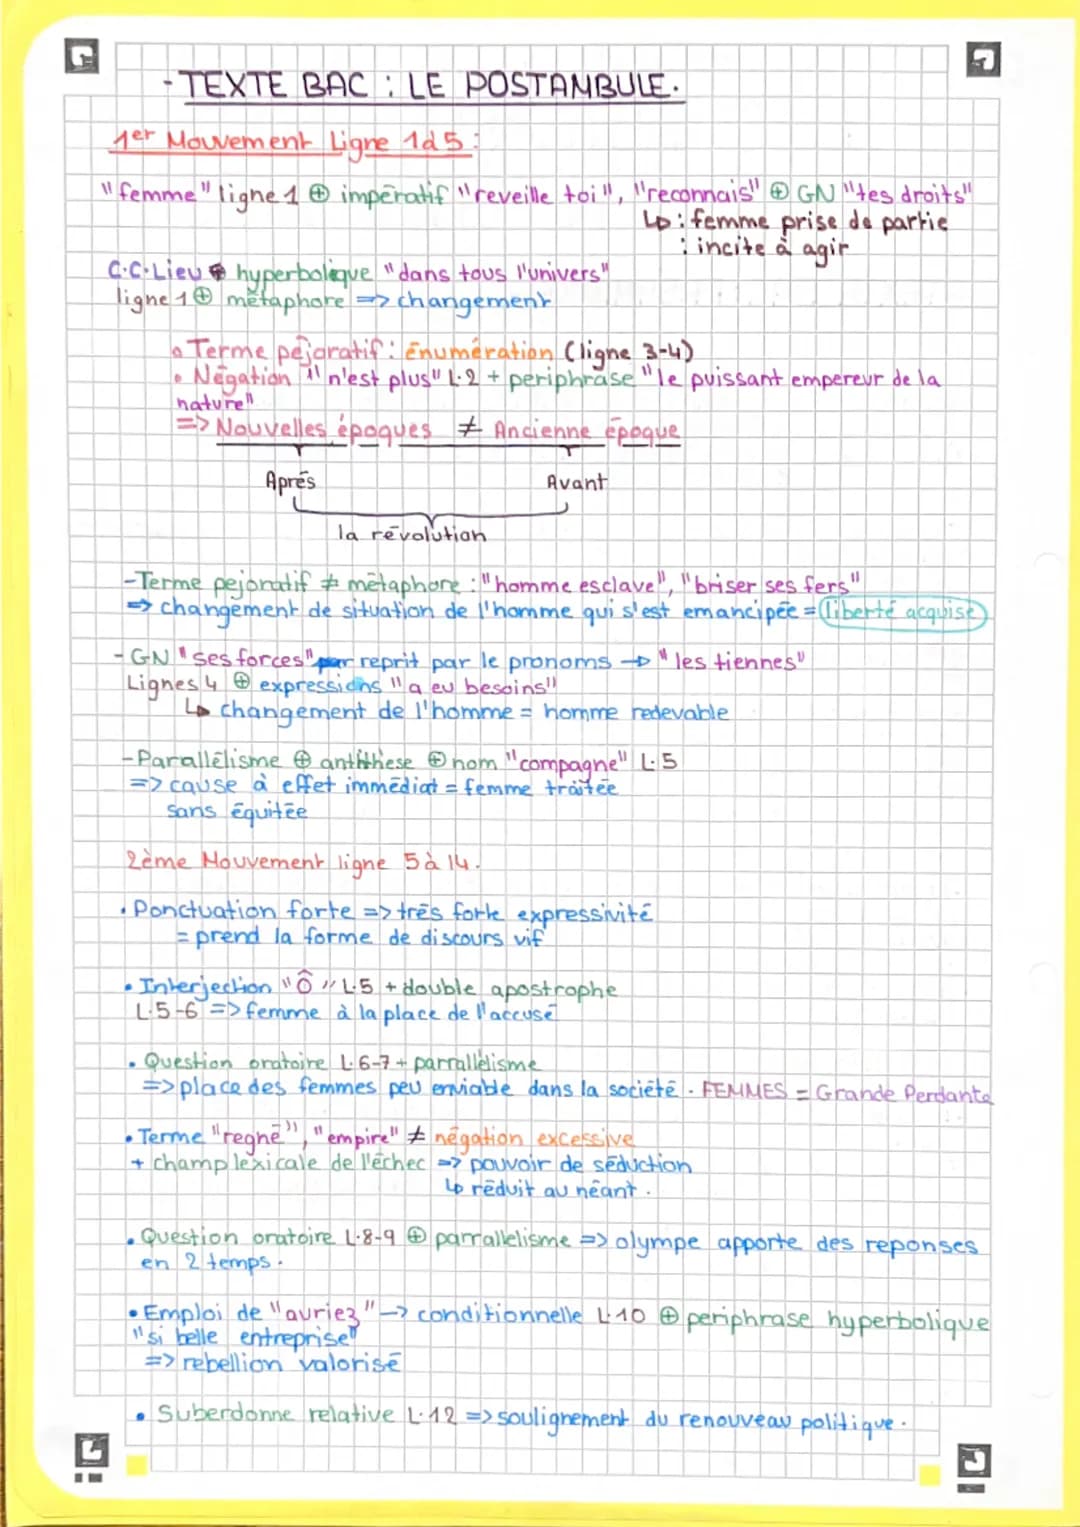 - TEXTE BAC : LE POSTAMBULE.
1er Mouvement Ligne 1à5 :
"femme" ligne 1 ⊕ impératif "reveille toi", "reconnais" ⊕ GN "tes droits"
↳ : femme prise de partie
: incite à agir
C.C.Lieu hyperbolique "dans tous l'univers"
ligne 1 ⊕ métaphore => changement
• Terme péjoratif : énumération (ligne 3-4)
• Négation "n'est plus" L.2 + periphrase "le puissant empereur de la
nature"
=> Nouvelles époques ≠ Ancienne époque
Aprés Avant
la révolution
-Terme pejoratif ≠ métaphore : "homme esclave", "briser ses fers"
=> changement de situation de l'homme qui s'est emancipée = liberté acquise
- GN "ses forces" par reprit par le pronoms → "les tiennes"
Lignes 4 ⊕ expressions "a eu besoins"
↳ changement de l'homme = homme redevable
-Parallélisme ⊕ antithèse ⊕ nom "compagne" L.5
=> cause à effet immédiat = femme traitée
sans équitée
2ème Mouvement ligne 5 à 14.
• Ponctuation forte => trés forte expressivité
= prend la forme de discours vif
• Interjection "Ô" L.5 + double apostrophe
L.5-6 => femme à la place de l'accusé
• Question oratoire L.6-7 + parrallélisme
=> place des femmes peu enviable dans la société. FEMMES = Grande Perdante
• Terme "regné", "empire" ≠ négation excessive
+ champ lexicale de l'échec => pouvoir de séduction
↳ réduit au néant.
• Question oratoire L.8-9 ⊕ parrallelisme => olympe apporte des reponses
en 2 temps.
• Emploi de "auriez" → conditionnelle L.10 ⊕ periphrase hyperbolique
"si belle entreprise"
=> rebellion valorisé
• Suberdonne relative L.12 => soulignement du renouveau politique.